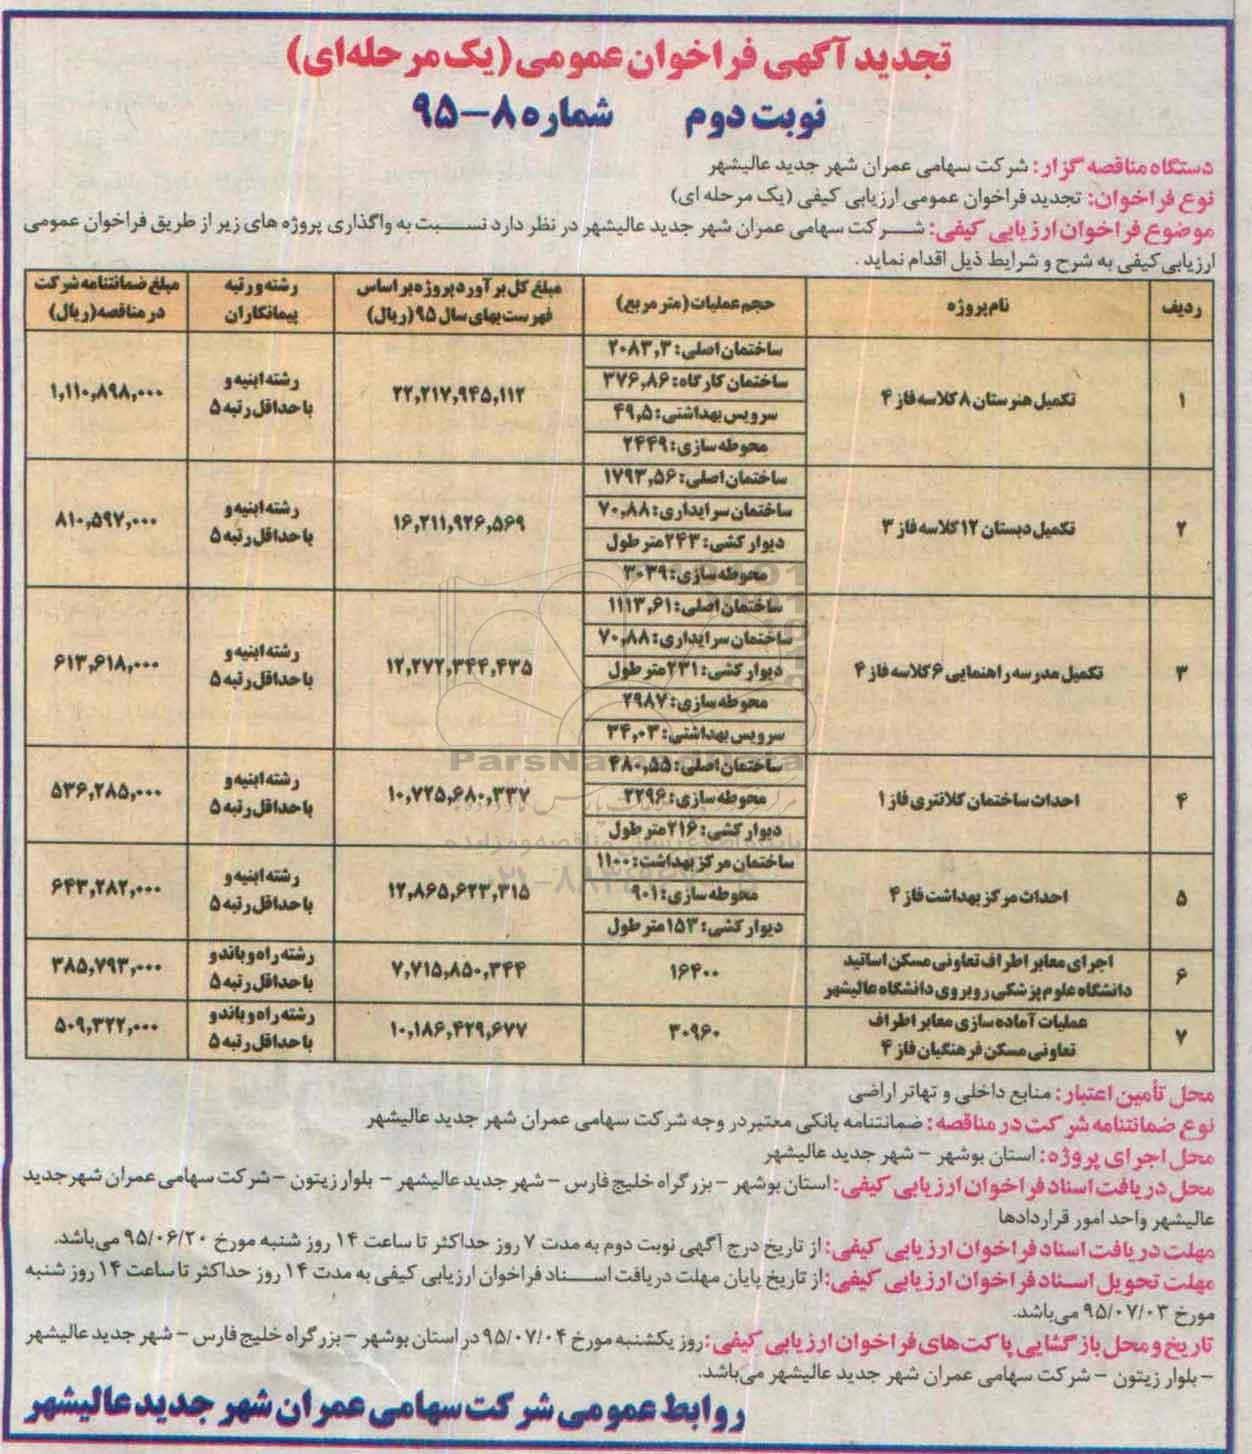 تجدید آگهی فراخوان عمومی (یک مرحله‌ای)
نوبت دوم شماره ۸-۹۵
دستگاه مناقصه گزار: شرکت سهامی عمران شهر جدید عالیشهر
نوع فراخوان: تجدید فراخوان عمومی ارزیابی کیفی (یک مرحله ای)
موضوع فراخوان ارزیابی کیفی: شرکت سهامی عمران شهر جدید عالیشهر در نظر دارد نسبت به واگذاری پروژه های زیر از طریق فراخوان عمومی
ارزیابی کیفی به شرح و شرایط ذیل اقدام نماید.
ردیف نام پروژه حجم عملیات (متر مربع) مبلغ کل برآورد پروژه بر اساس فهرست بهای سال ۹۵ (ریال) رشته و رتبه پیمانکاران مبلغ ضمانتنامه شرکت در مناقصه (ریال)
۱ تکمیل هنرستان ۸ کلاسه فاز ۴
ساختمان اصلی: ۲۰۸۳,۳
ساختمان کارگاه: ۳۷۶,۸۶
سرویس بهداشتی: ۴۹,۵
محوطه سازی: ۲۴۴۹
۲۲,۲۱۷,۹۴۵,۱۱۲
رشته ابنیه و
با حداقل رتبه ۵
۱,۱۱۰,۸۹۸,۰۰۰
۲ تکمیل دبستان ۱۲ کلاسه فاز ۳
ساختمان اصلی: ۱۷۹۳,۵۶
ساختمان سرایداری: ۷۰,۸۸
دیوار کشی: ۲۴۳ متر طول
محوطه سازی: ۳۰۳۹
۱۶,۲۱۱,۹۲۶,۵۶۹
رشته ابنیه و
با حداقل رتبه ۵
۸۱۰,۵۹۷,۰۰۰
۳ تکمیل مدرسه راهنمایی ۶ کلاسه فاز ۴
ساختمان اصلی: ۱۱۱۳,۶۱
ساختمان سرایداری: ۷۰,۸۸
دیوار کشی: ۲۳۱ متر طول
محوطه سازی: ۲۹۸۷
سرویس بهداشتی: ۳۴,۰۳
۱۲,۲۷۲,۳۴۴,۴۳۵
رشته ابنیه و
با حداقل رتبه ۵
۶۱۳,۶۱۸,۰۰۰
۴ احداث ساختمان کلانتری فاز ۱
ساختمان اصلی: ۴۸۰,۵۵
محوطه سازی: ۲۲۹۶
دیوار کشی: ۲۱۶ متر طول
۱۰,۷۲۵,۶۸۰,۳۳۷
رشته ابنیه و
با حداقل رتبه ۵
۵۳۶,۲۸۵,۰۰۰
۵ احداث مرکز بهداشت فاز ۴
ساختمان مرکز بهداشت: ۱۱۰۰
محوطه سازی: ۹۰۱
دیوار کشی: ۱۵۳ متر طول
۱۲,۸۶۵,۶۲۳,۳۱۵
رشته ابنیه و
با حداقل رتبه ۵
۶۴۳,۲۸۲,۰۰۰
۶ اجرای معابر اطراف تعاونی مسکن اساتید
دانشگاه علوم پزشکی روبروی دانشگاه عالیشهر
۱۶۴۰۰
۷,۷۱۵,۸۵۰,۳۴۴
رشته راه و باند و
با حداقل رتبه ۵
۳۸۵,۷۹۳,۰۰۰
۷ عملیات آماده سازی معابر اطراف
تعاونی مسکن فرهنگیان فاز ۴
۳۰۹۶۰
۱۰,۱۸۶,۴۲۹,۶۷۷
رشته راه و باند و
با حداقل رتبه ۵
۵۰۹,۳۲۲,۰۰۰
محل تأمین اعتبار: منابع داخلی و تهاتر اراضی
نوع ضمانتنامه شرکت در مناقصه: ضمانتنامه بانکی معتبر در وجه شرکت سهامی عمران شهر جدید عالیشهر
محل اجرای پروژه: استان بوشهر - شهر جدید عالیشهر
محل دریافت اسناد فراخوان ارزیابی کیفی: استان بوشهر - بزرگراه خلیج فارس - شهر جدید عالیشهر - بلوار زیتون - شرکت سهامی عمران شهر جدید
عالیشهر واحد امور قراردادها
مهلت دریافت اسناد فراخوان ارزیابی کیفی: از تاریخ درج آگهی نوبت دوم به مدت ۷ روز حداکثر تا ساعت ۱۴ روز شنبه مورخ ۹۵/۰۶/۲۰ می‌باشد.
مهلت تحویل اسناد فراخوان ارزیابی کیفی: از تاریخ پایان مهلت دریافت اسناد فراخوان ارزیابی کیفی به مدت ۱۴ روز حداکثر تا ساعت ۱۴ روز شنبه
مورخ ۹۵/۰۷/۰۳ می‌باشد.
تاریخ و محل بازگشایی پاکت‌های فراخوان ارزیابی کیفی: روز یکشنبه مورخ ۹۵/۰۷/۰۴ در استان بوشهر - بزرگراه خلیج فارس - شهر جدید عالیشهر
- بلوار زیتون - شرکت سهامی عمران شهر جدید عالیشهر می‌باشد.
روابط عمومی شرکت سهامی عمران شهر جدید عالیشهر